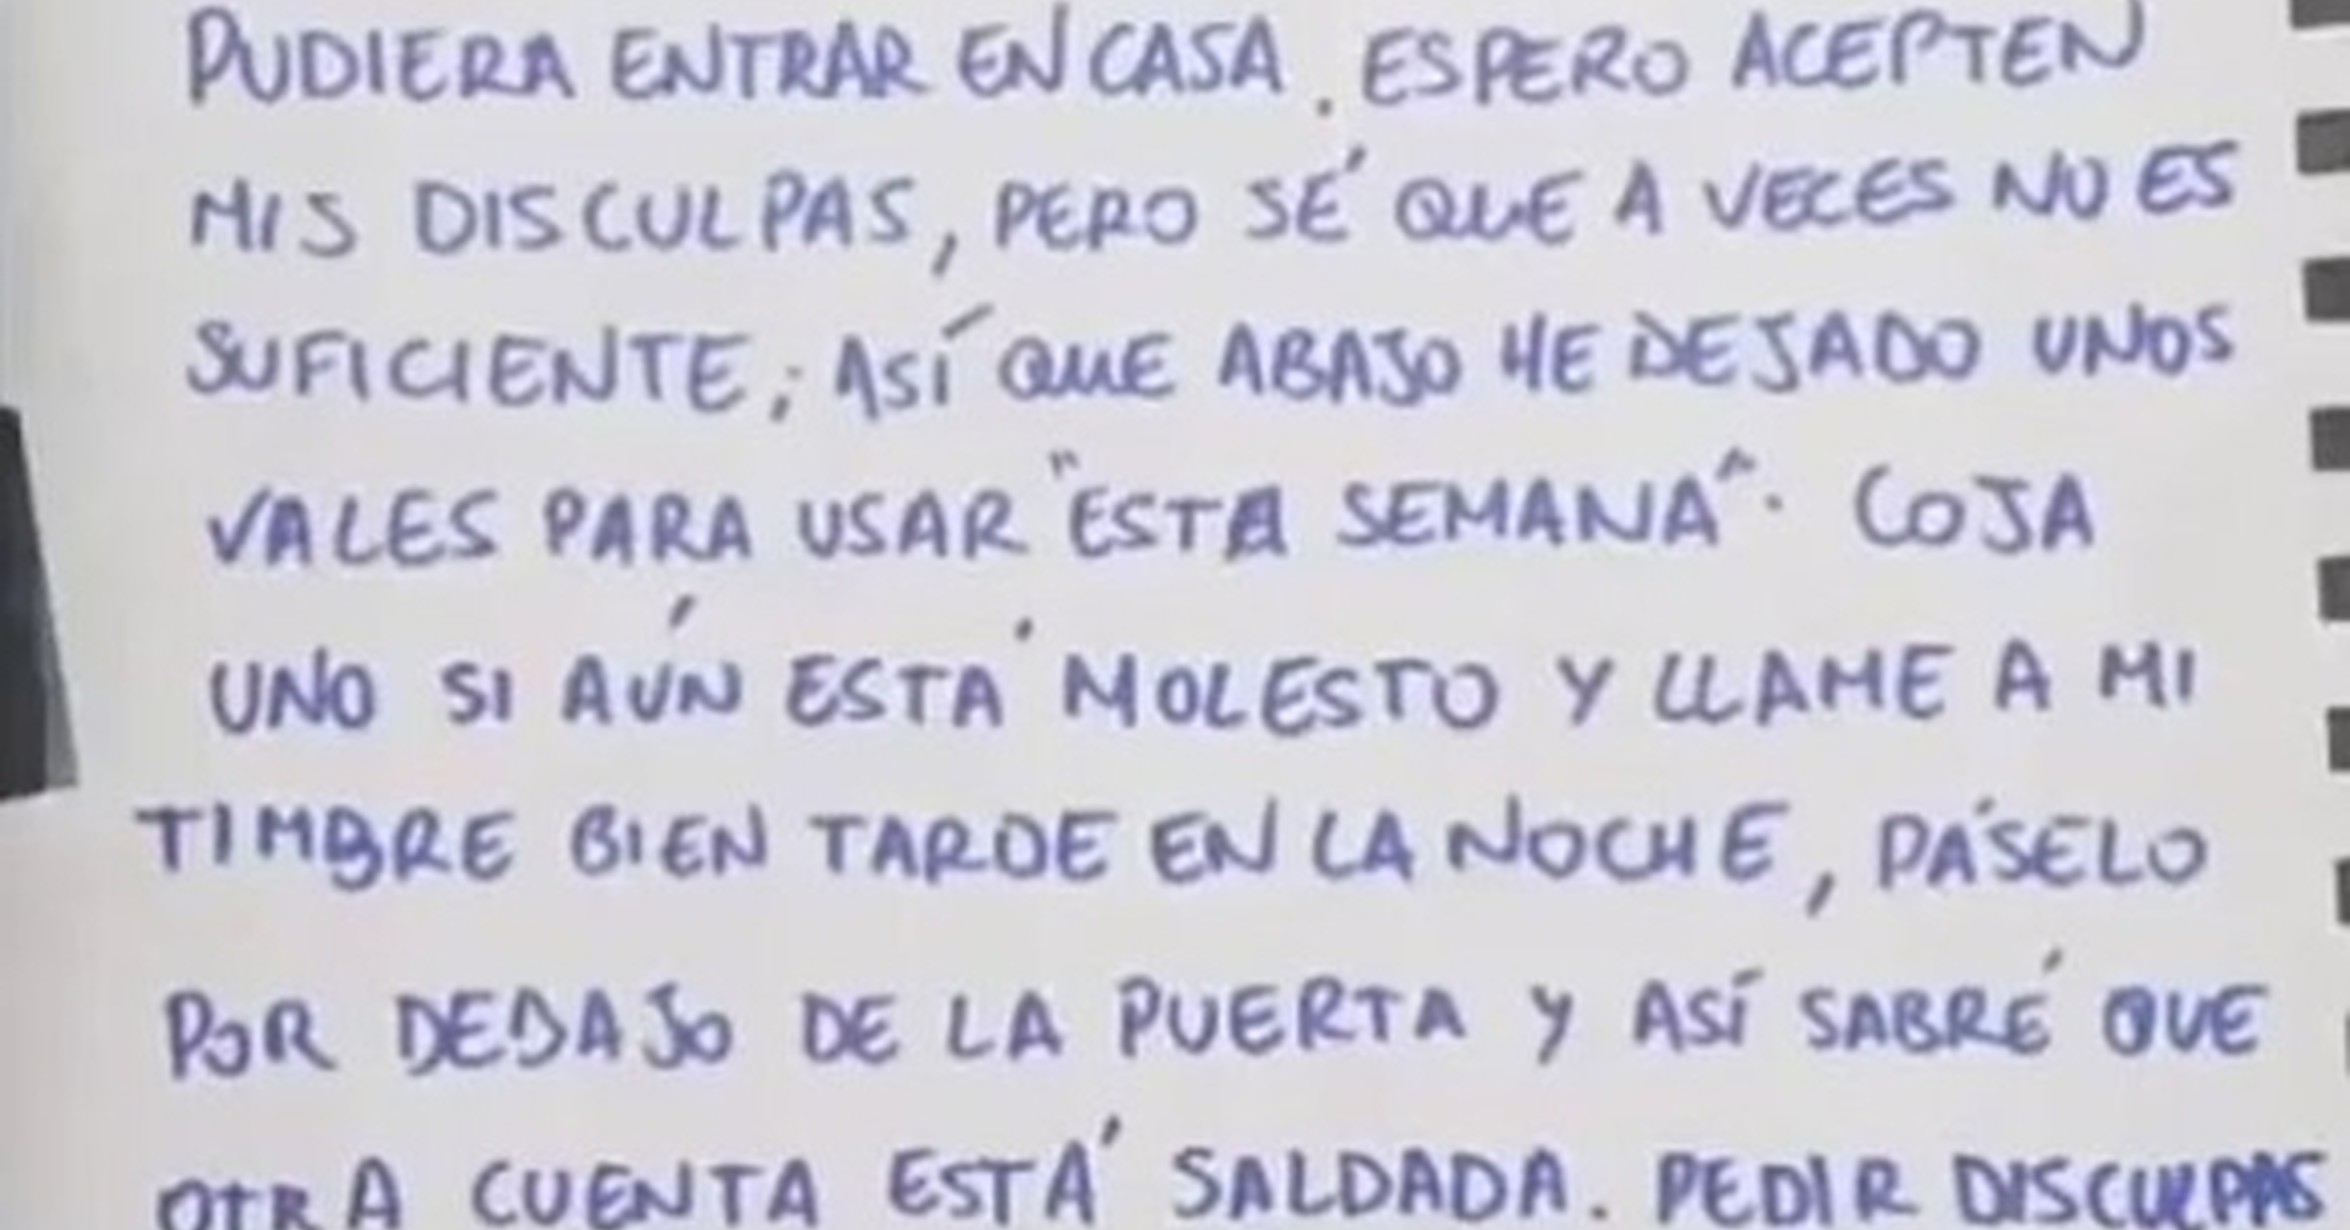 PUDIERA ENTRAR EN CASA. ESPERO ACEPTEN
MIS DISCULPAS, PERO SÉ QUE A VECES NO ES
SUFICIENTE; ASÍ QUE ABAJO HE DEJADO UNOS
VALES PARA USAR "ESTA SEMANA". COJA
UNO SI AÚN ESTÁ MOLESTO Y LLAME A MI
TIMBRE BIEN TARDE EN LA NOCHE, PÁSELO
POR DEBAJO DE LA PUERTA Y ASÍ SABRÉ QUE
OTRA CUENTA ESTÁ SALDADA. PEDIR DISCULPAS